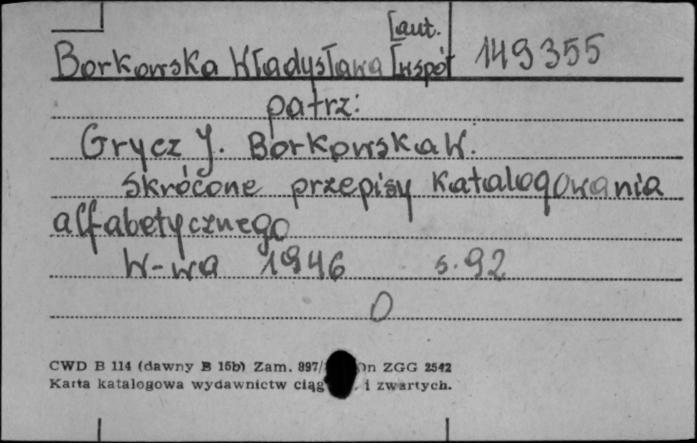 [aut.
Borkowska Władysława [współ 149355
patrz:
Grycz J. Borkowska W.
Skrócone przepisy katalogowania
alfabetycznego
W-wa 1946 s. 92
0
CWD B 114 (dawny B 15b) Zam. 897/ ZGG 2542
Karta katalogowa wydawnictw i zwartych.